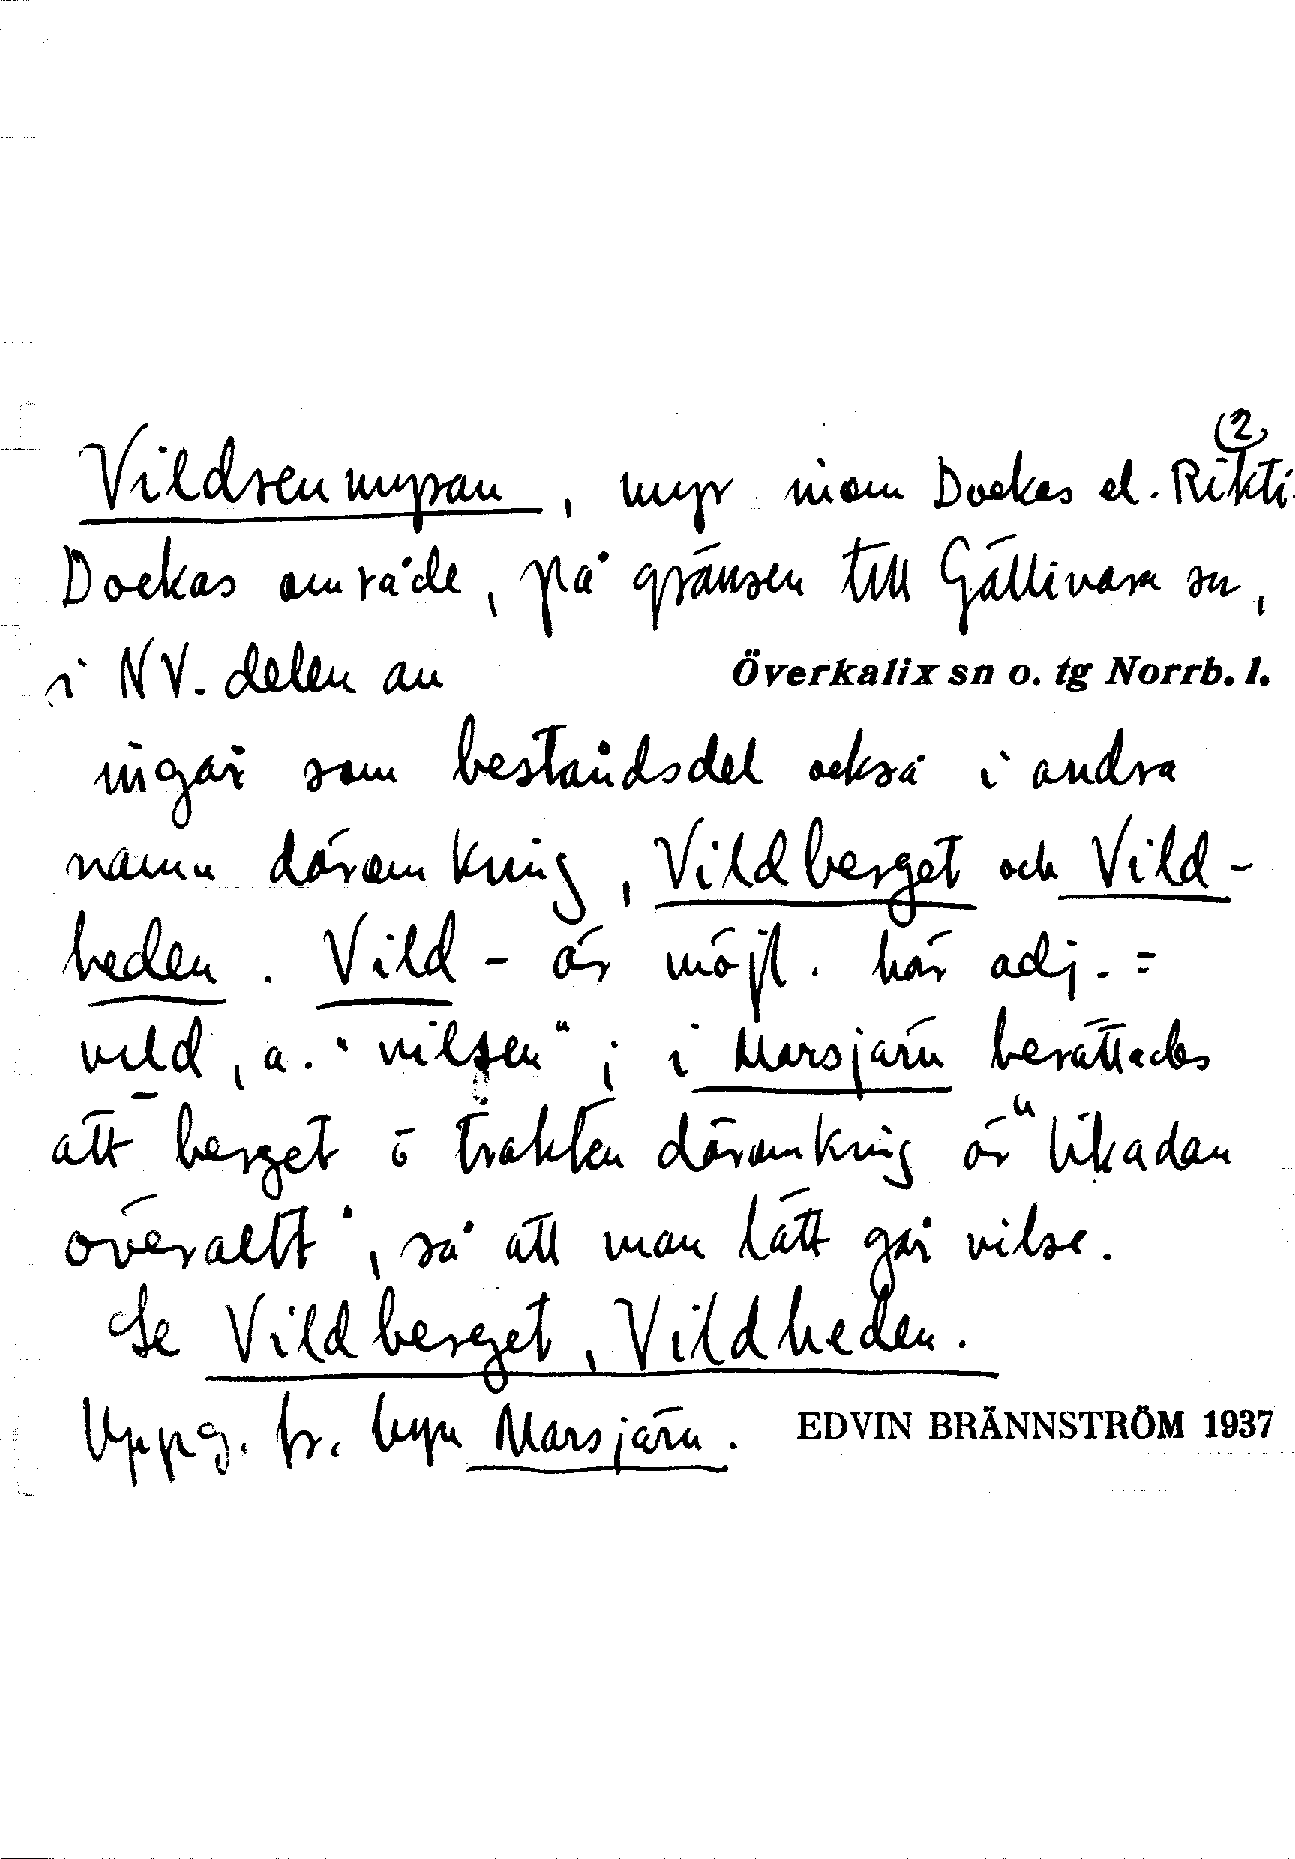 (2)
Vildsenmyran, myr inom Dockas el. Rikti-
Dockas område, på gränsen till Gällivare sn,
i NV. delen av Överkalix sn o. tg Norrb. l.
ingår som beståndsdel också i andra
namn däromkring, Vildberget och Vild-
heden. Vild- är möjl. här adj. =
vild, a. "vilsen"; i Marsjärn berättades
att berget o trakten däromkring är "likadan
överallt", så att man lätt går vilse.
Se Vildberget, Vildheden.
Uppg. fr. byn Marsjärn. EDVIN BRÄNNSTRÖM 1937